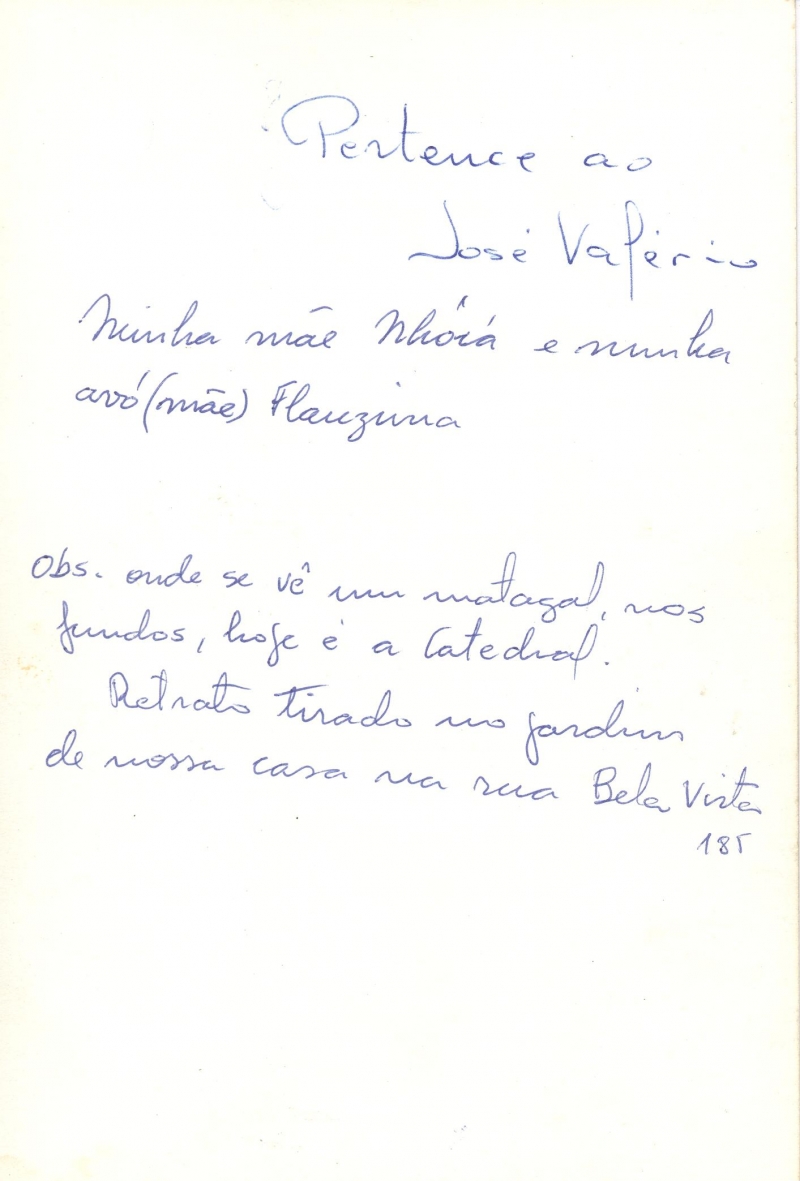 Pertence ao
José Valério
Minha mãe Nhóiá e minha
avó (mãe) Flauzina
Obs. onde se vê um matagal, nos
fundos, hoje é a Catedral.
Retrato tirado no jardim
de nossa casa na rua Bela Vista
185